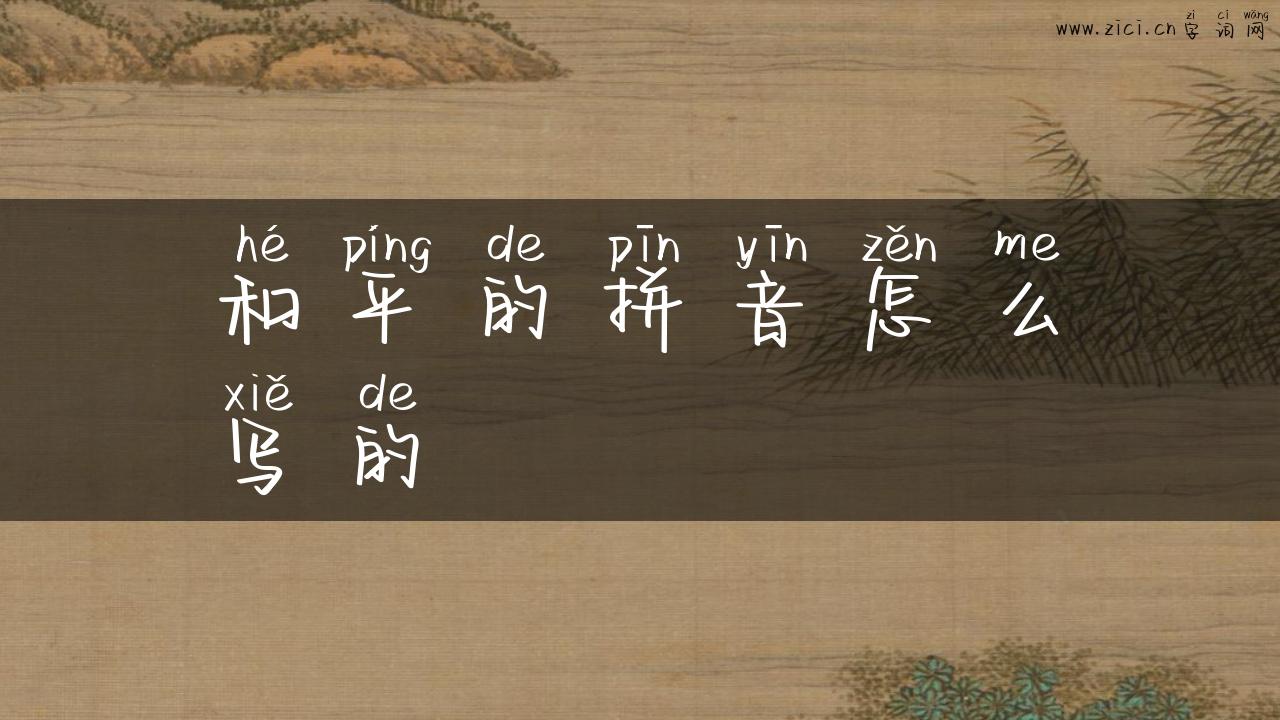 zì cí wǎng
www.zici.cn 字词网
hé píng de pīn yīn zěn me
和平的拼音怎么
xiě de
写的